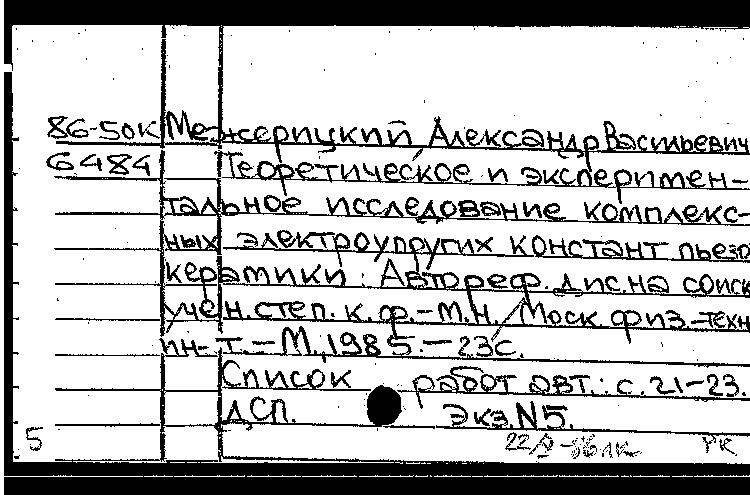 86-50к Межерицкий, Александр Васильевич
6484 Теоретическое и эксперимен-
тальное исследование комплекс-
ных электроупругих констант пьезо
керамики: Автореф. дис. на соиск
учен. степ. к. ф.-м.н. / Моск физ.-техн
ин-т. - М., 1985. - 23с.
Список работ авт.: с. 21-23.
ДСП. Экз. N5.
5
РК